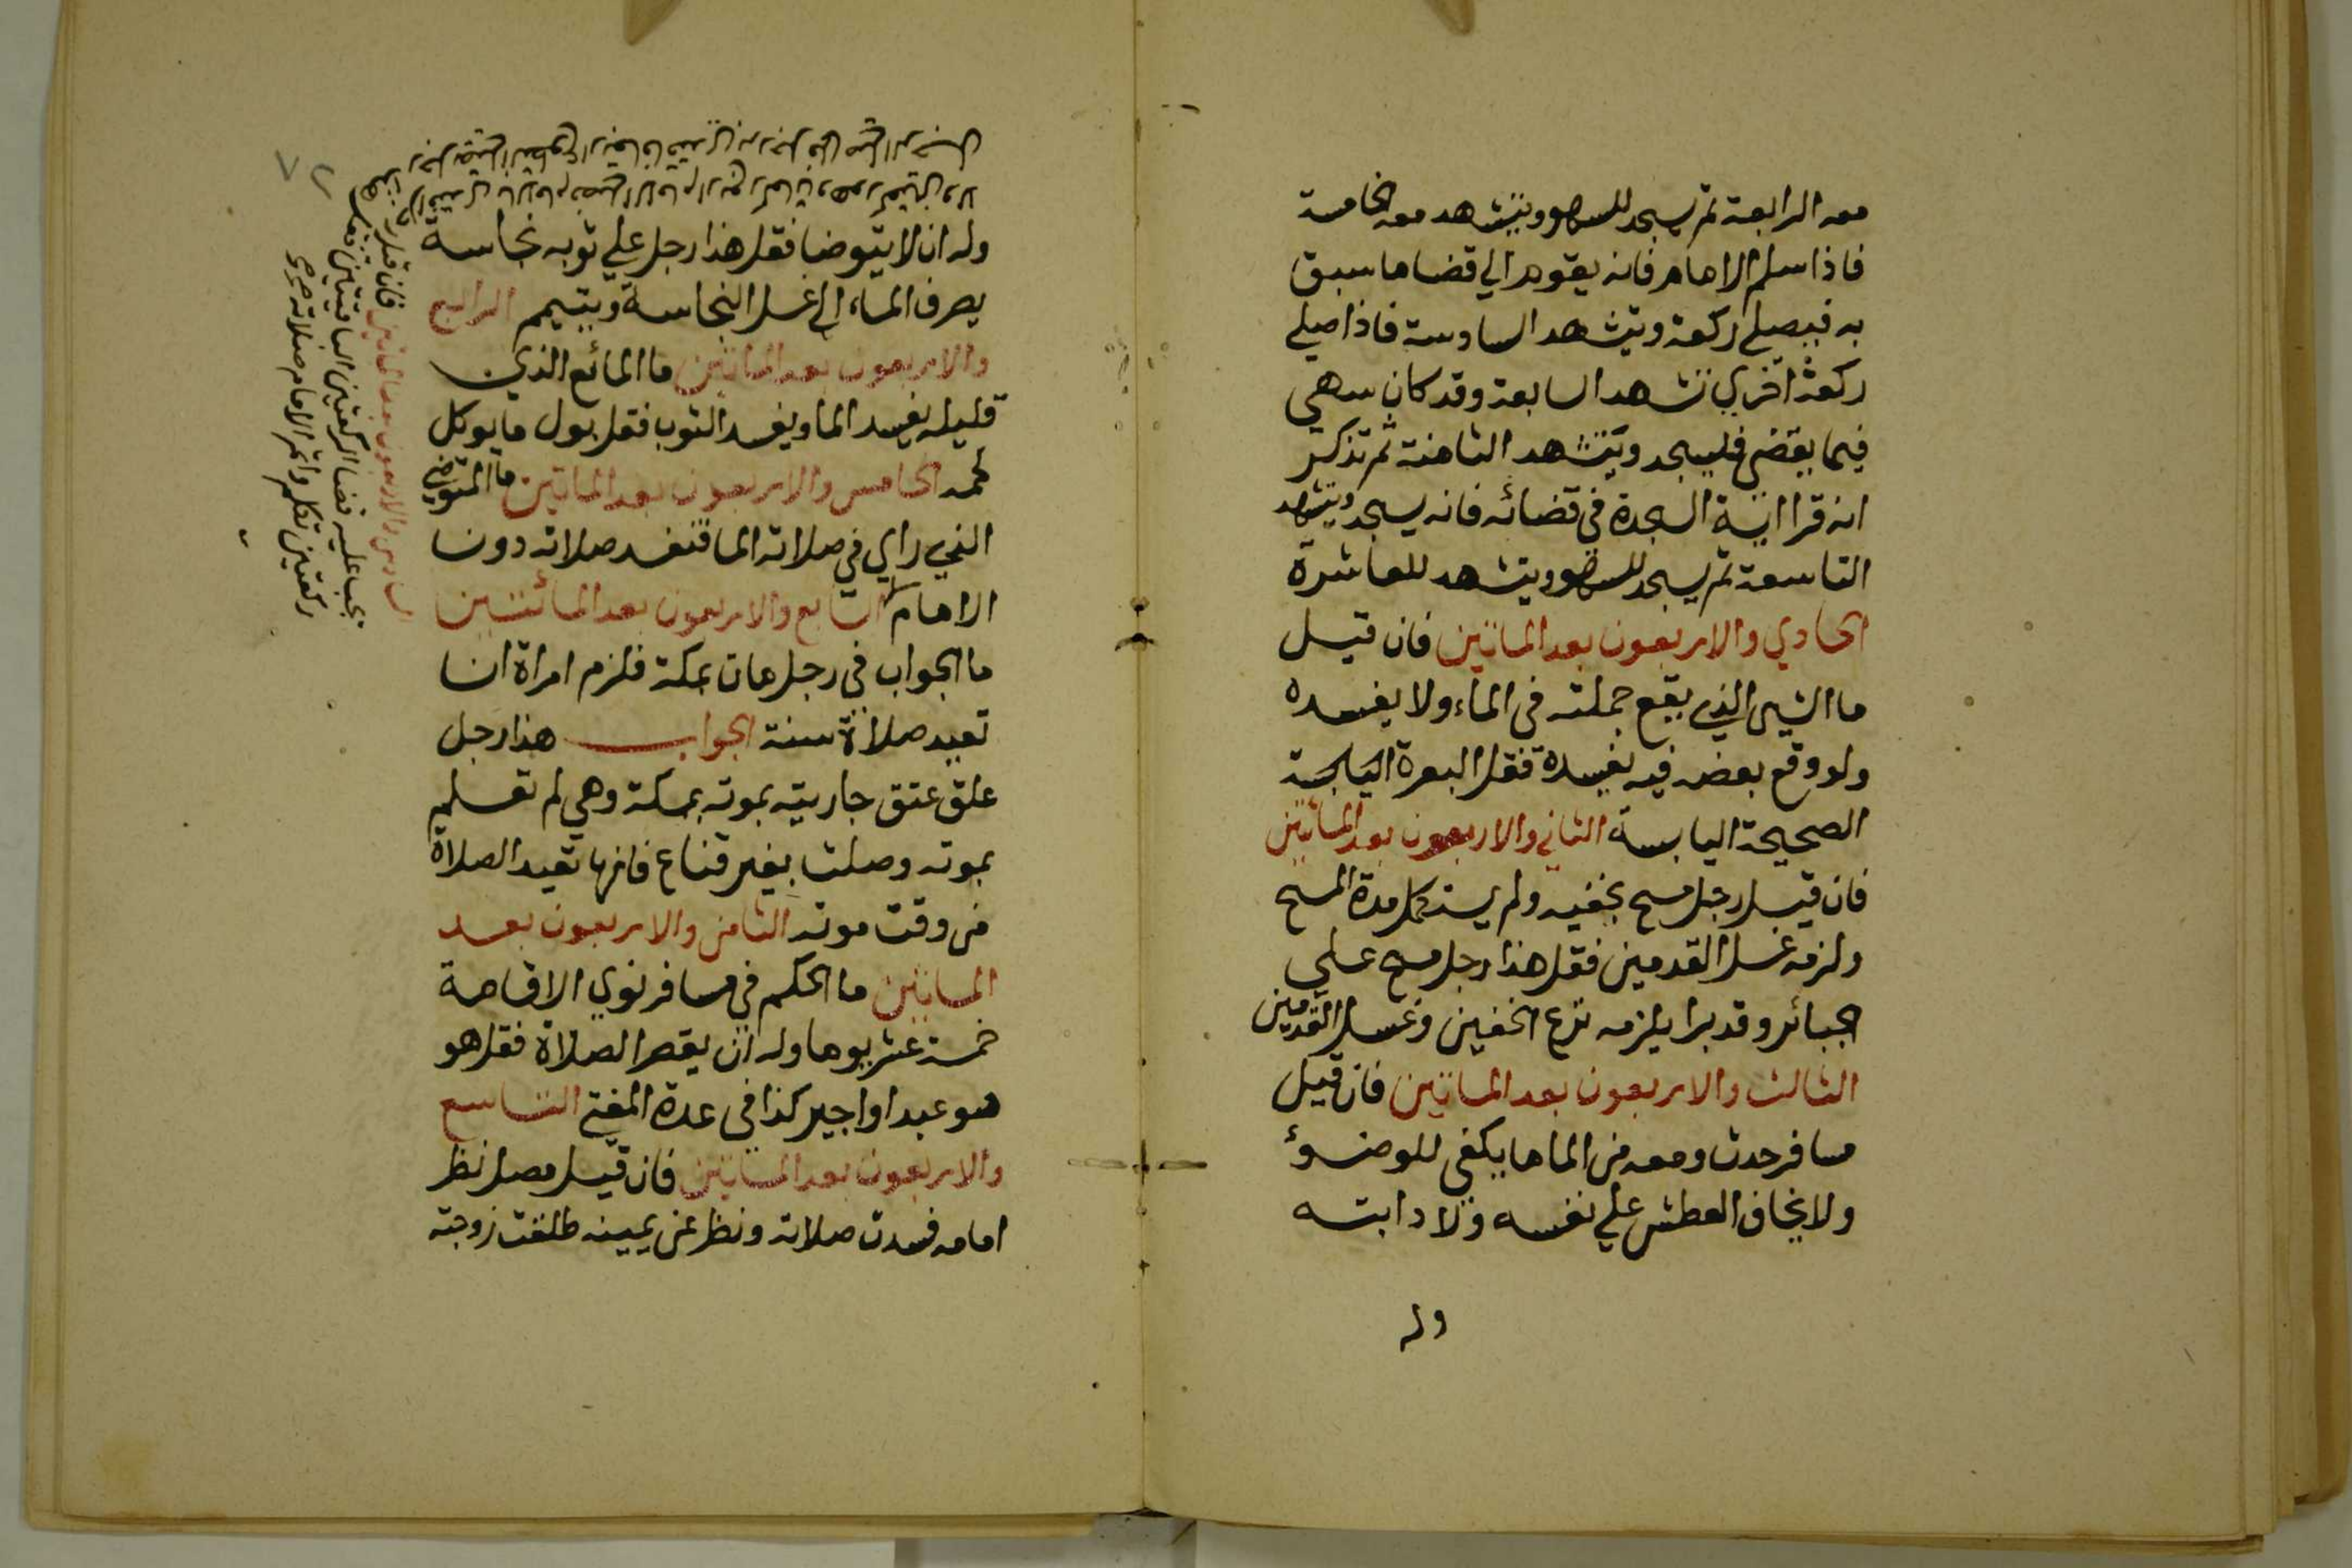 معه الرابعة ثم يسجد للسهو ويتشهد معه الخامسة
فاذا سلم الامام فانه يقوم الي قضا ما سبق
به فيصلي ركعة ويتشهد السادسة فاذا صلي
ركعة اخري تشهد السابعة وقد كان سهي
فيما يقضي فليسجد ويتشهد الثامنة ثم تذكر
انه قرا اية السجدة في قضائه فانه يسجد ويتشهد
التاسعة ثم يسجد للسهو ويتشهد للعاشرة
الحادي والاربعون بعد الماتين فان قيل
ما الشي الذي يقع جملته في الماء ولا يفسده
ولو وقع بعضه فيه يفسده فقل البعرة
الصحيحة اليابسة الثاني والاربعون بعد الماتين
فان قيل رجل مسح بخفيه ولم يستكمل مدة المسح
ولزمه غسل القدمين فقل هذا رجل مسح علي
الجبائر وقد برا يلزمه نزع الخفين وغسل القدمين
الثالث والاربعون بعد الماتين فان قيل
مسافر حدث ومعه من الما ما يكفي للوضوء
ولا يخاف العطش علي نفسه ولا دابته
وله
٧٢
وله ان لا يتوضا فقل هذا رجل علي ثوبه نجاسة
يصرف الماء الي غسل النجاسة ويتيمم الرابع
والاربعون بعد الماتين ما المائع الذي
قليله يفسد الما ويفسد الثوب فقل بول ما يوكل
لحمه الخامس والاربعون بعد الماتين ما المتوضي
الذي راي في صلاته الما فتفسد صلاته دون
الامام السابع والاربعون بعد المائتين
ما الجواب في رجل مات بمكة فلزم امراة ان
تعيد صلاة سنة الجواب هذا رجل
علق عتق جاريته بموته بمكة وهي لم تعلم
بموته وصلت بغير قناع فانها تعيد الصلاة
من وقت موته الثامن والاربعون بعد
الماتين ما الحكم في مسافر نوي الاقامة
خمسة عشر يوما وله ان يقصر الصلاة فقل هو
هو عبد او اجير كذا في عدة المفتي التاسع
والاربعون بعد الماتين فان قيل مصل نظر
امامه فسدت صلاته ونظر عن يمينه طلقت زوجته
السادس والاربعون بعد الماتين فان قيل
يجب عليه قضا الركعتين الباقيتين فقل
ركعتين تكلم واتم الامام صلاته